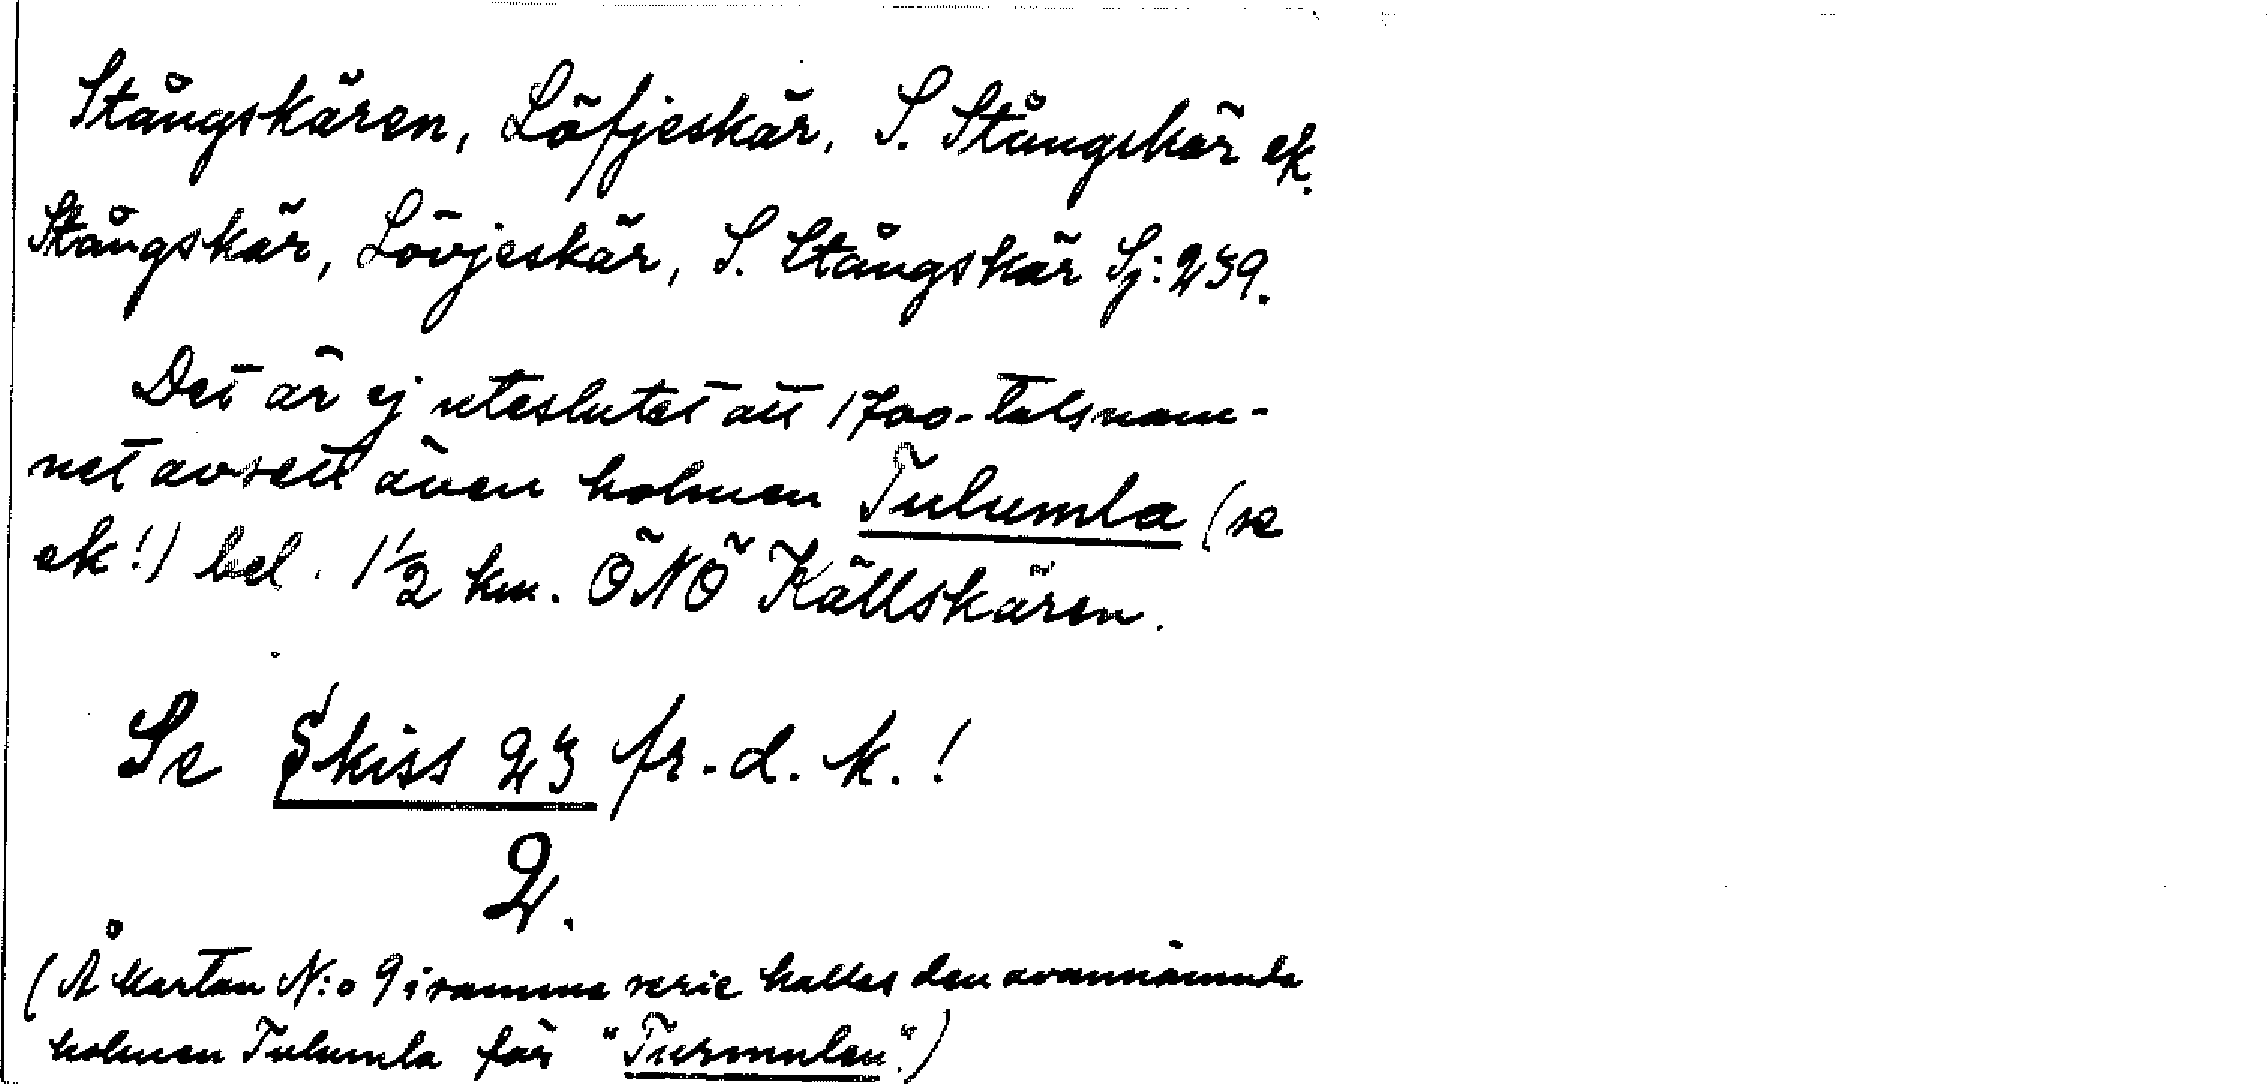 Stångskären, Löfjeskär, S. Stångskär ek.
Stångskär, Lövjeskär, S. Stångskär Sj: 239.
Det är ej uteslutet att 1700-talsnam-
net avsett även holmen Tulumla (se
ek!) bel. 1 1/2 km. ÖNÖ Källskären.
Se Skiss 23 fr. d. k.!
2.
(Å kartan N:o 9 i samma serie kallas den ovannämnda
holmen Tulumla för "Turmulen".)